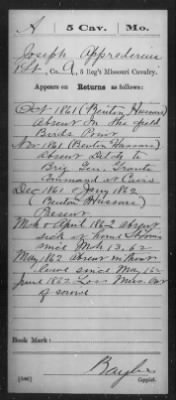 A | 5 Cav. | Mo.
Joseph Apprederis
Pvt, Co. A, 5 Reg't Missouri Cavalry.
Appears on Returns as follows:
Oct 1861 (Benton Hussars)
absent In the field
Birds Point
Nov 1861 (Benton Hussars)
absent Det. to
Brig Gen. Grants
Command at Cairo
Dec 1861 & Jany 1862
(Benton Hussars)
Present
Mch & April 1862 absent
sick at home
since Mch 13, 62
May 1862 absent without
leave since May 1 62
June 1862 Loss
Book Mark:
(546)
Copyist.